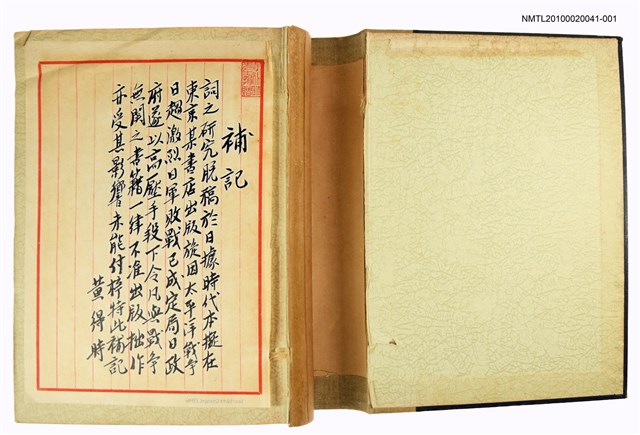 NMTL20100020041-001
補記
詞之研究脱稿於日據時代本擬在
東京某書店出版旋因太平洋戰爭
日趨激烈日軍敗戰已成定局日政
府遂以高壓手段下令凡與戰爭
無関之書籍一律不准出版拙作
亦受其影響未能付梓特此補記
黃得時